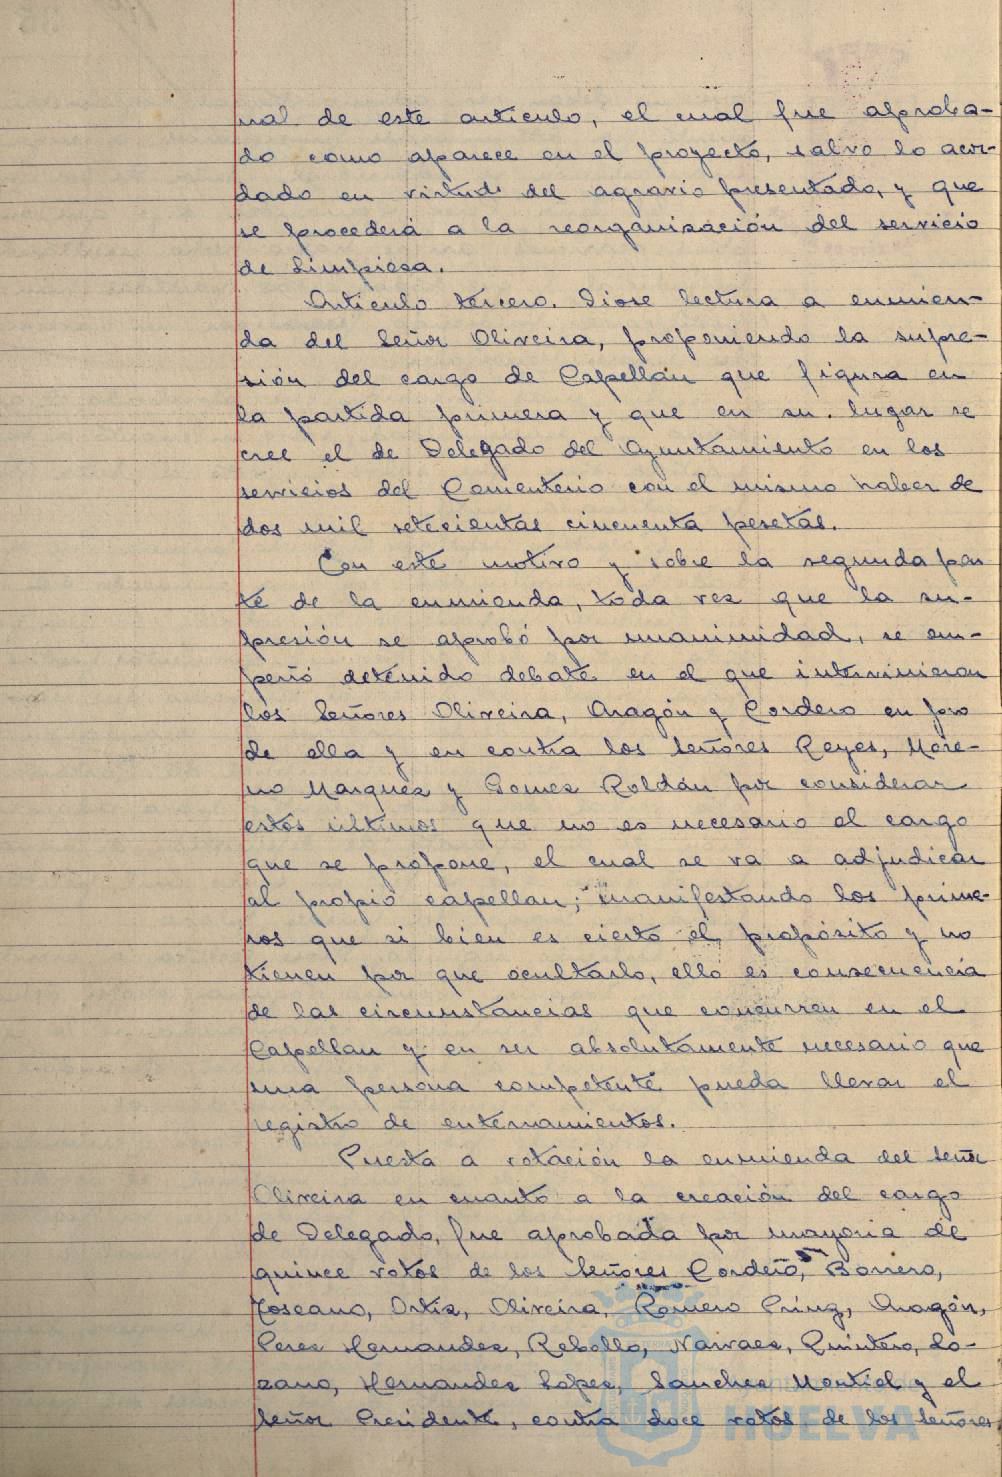 nal de este artículo, el cual fue aproba-
do como aparece en el proyecto, salvo lo acor-
dado en virtud del agravio presentado, y que
se procederá a la reorganización del servicio
de Limpieza.
Artículo tercero. Diose lectura a enmien-
da del Señor Oliveira, proponiendo la supre-
sión del cargo de Capellán que figura en
la partida primera y que en su lugar se
cree el de Delegado del Ayuntamiento en los
servicios del Cementerio con el mismo haber de
dos mil setecientas cincuenta pesetas.
Con este motivo y sobre la segunda par
te de la enmienda, toda vez que la su-
presión se aprobó por unanimidad, se em-
peñó detenido debate en el que intervinieron
los Señores Oliveira, Aragón y Cordero en pro
de ella y en contra los señores Reyes, More-
no Marquez y Gomez Roldán por considerar
estos últimos que no es necesario el cargo
que se propone, el cual se va a adjudicar
al propio capellan; manifestando los prime-
ros que si bien es cierto el propósito y no
tienen por que ocultarlo, ello es consecuencia
de las circunstancias que concurren en el
Capellan y en ser absolutamente necesario que
una persona competente pueda llevar el
registro de enterramientos.
Puesta a votación la enmienda del Señor
Oliveira en cuanto a la creación del cargo
de Delegado, fue aprobada por mayoria de
quince votos de los Señores Cordero, Borrero,
Toscano, Ortiz, Oliveira, Romero Prinz, Aragón,
Perez Hernandez, Rebollo, Narvaez, Quintero, Lo-
zano, Hernandez Lopez, Sanchez Montiel y el
Señor Presidente, contra doce votos de los Señores
HUELVA